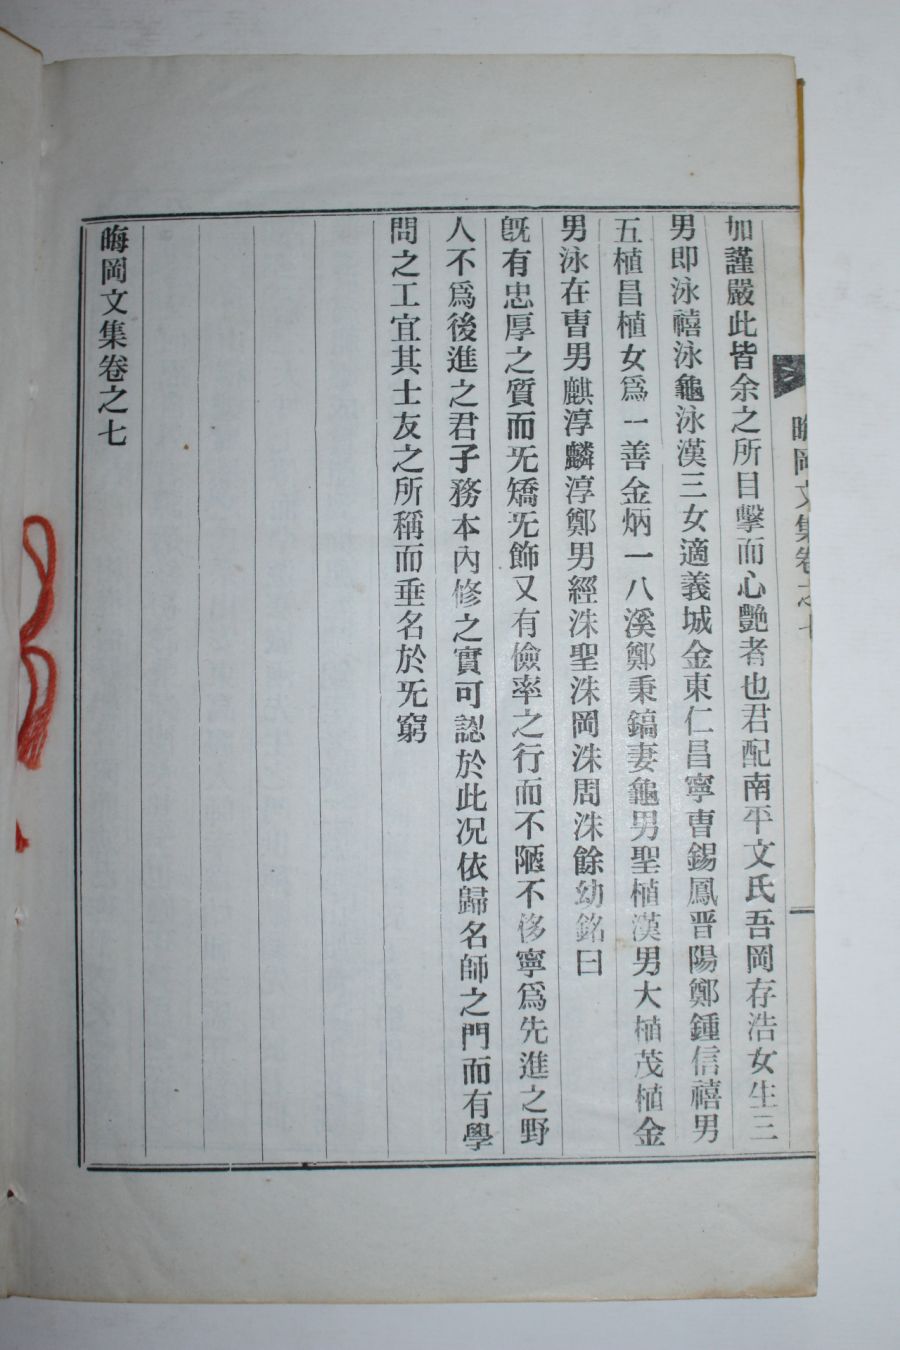 晦岡文集卷之七
加謹嚴此皆余之所目擊而心艶者也君配南平文氏吾岡存浩女生三
男即泳禧泳龜泳漢三女適義城金東仁昌寧曺錫鳳晋陽鄭鍾信禧男
五植昌植女爲一善金炳一八溪鄭秉鎬妻龜男聖植漢男大植茂植金
男泳在曺男麒淳麟淳鄭男經洙聖洙岡洙周洙餘幼銘曰
旣有忠厚之質而旡矯旡飾又有儉率之行而不陋不侈寧爲先進之野
人不爲後進之君子務本內修之實可認於此况依歸名師之門而有學
問之工宜其士友之所稱而垂名於旡窮
晦岡文集卷之七